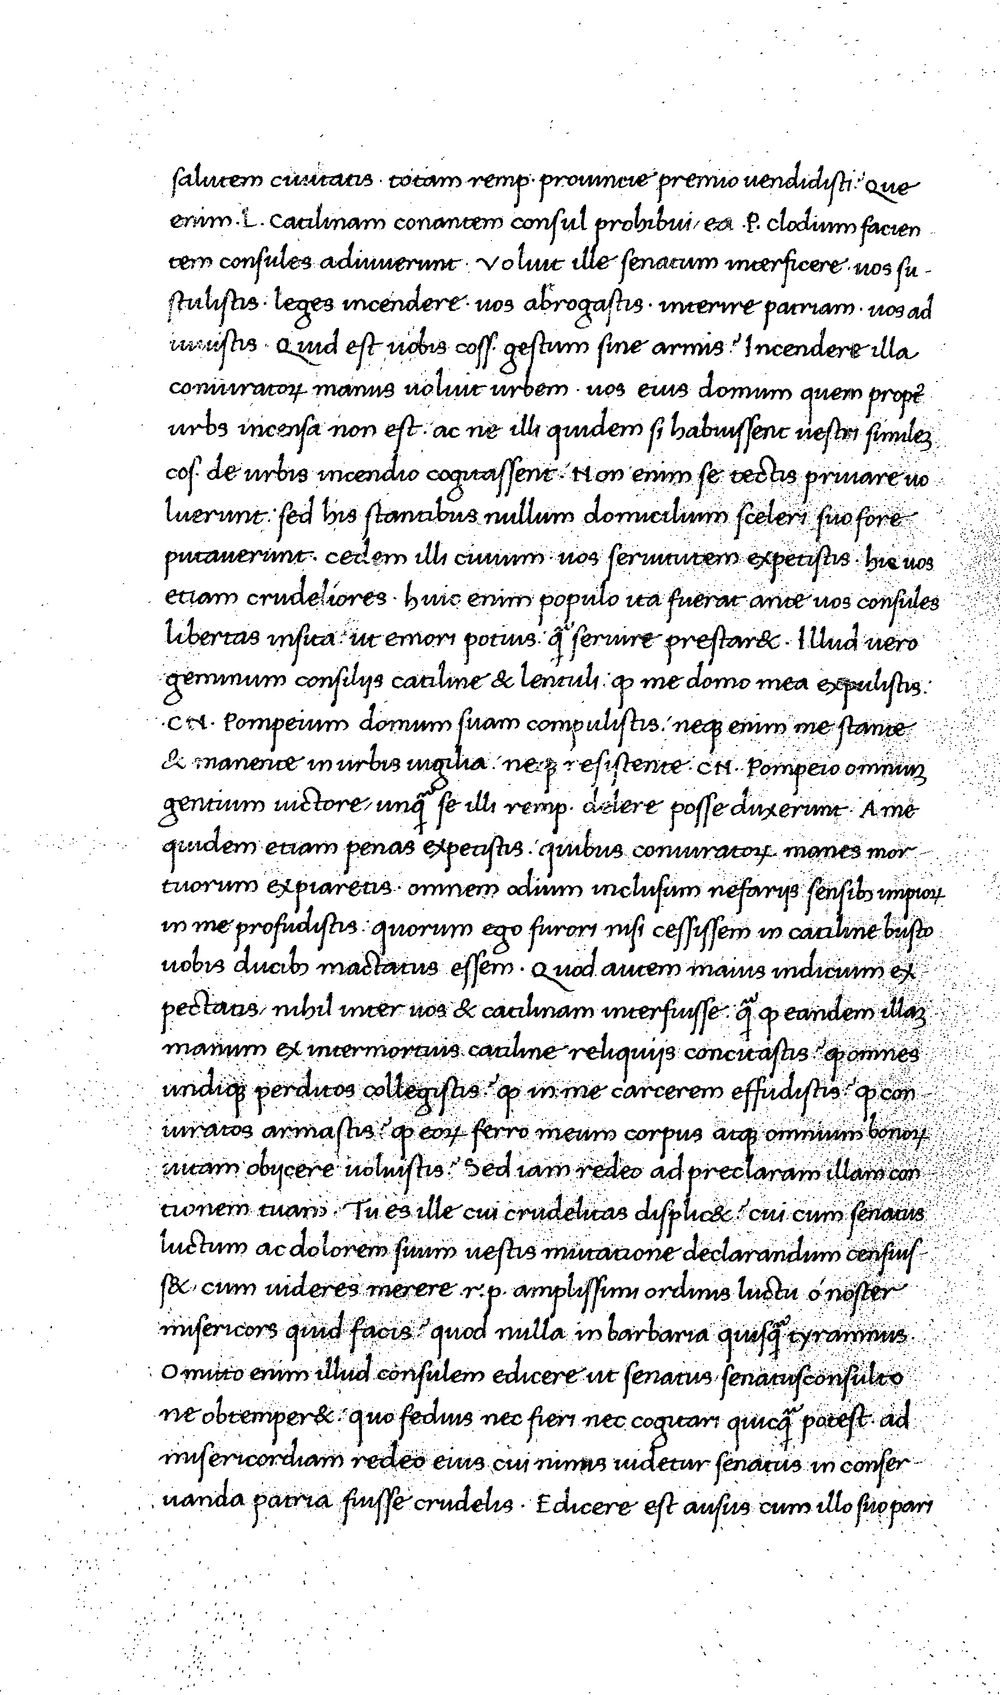 salutem ciuitatis · totam remp · prouincie premio uendidisti: Que
enim · L · Catilinam conantem consul prohibui, ea · P. clodium facien
tem consules adiuuerunt · Voluit ille senatum interficere · uos su-
stulistis · leges incendere · uos abrogastis · interire patriam · uos ad
iuuistis · Quid est uobis coss. gestum sine armis? Incendere illa
coniuratoꝝ manus uoluit urbem · uos eius domum quem propt̄
urbs incensa non est · ac ne illi quidem si habuissent uestri simileꝫ
cos. de urbis incendio cogitassent · Non enim se tectis priuare uo
luerunt: sed his stantibus nullum domicilium sceleri suo fore
putauerunt · cedem illi ciuium · uos seruitutem expetistis · hic uos
etiam crudeliores · huic enim populo ita fuerat ante uos consules
libertas insita: ut emori potius qꝫ̃ seruire prestar& · Illud uero
geminum consilijs catiline & lentuli: ꝙ me domo mea expulistis:
· CN · Pompeium domum suam compulistis: neqꝫ enim me stante
& manente in urbis uigilia: neqꝫ resistente · CN · Pompeio omniuꝫ
gentium uictore, unq̃ se illi remp · delere posse duxerunt · A me
quidem etiam penas expetistis: quibus coniuratoꝝ manes mor-
tuorum expiaretis · omnem odium inclusum nefarijs sensibꝫ impioꝝ
in me profudistis: quorum ego furori nisi cessissem in catiline busto
uobis ducibꝫ mactatus essem · Quod autem maius indicium ex
pectatis, nihil inter uos & catilinam interfuisse: q̃ ꝙ eandem illaꝫ
manum ex intermortuis catiline reliquijs concitastis? ꝙ omnes
undiqꝫ perditos collegistis? ꝙ in me carcerem effudistis? ꝙ con-
iuratos armastis? ꝙ eoꝝ ferro meum corpus atqꝫ omnium bonoꝝ
uitam obijcere uoluistis? Sed iam redeo ad preclaram illam con
tionem tuam · Tu es ille cui crudelitas displic&? cui cum senatus
luctum ac dolorem suum uestis mutatione declarandum censuis-
s& · cum uideres merere · r · p · amplissimi ordinis luctu o noster
misericors quid facis? quod nulla in barbaria quisq̃ tyrannus ·
Omitto enim illud consulem edicere ut senatus senatusconsulto
ne obtemper&: quo fedius nec fieri nec cogitari quicq̃ potest · ad
misericordiam redeo eius cui nimis uidetur senatus in conser-
uanda patria fuisse crudelis · Edicere est ausus cum illo suo pari